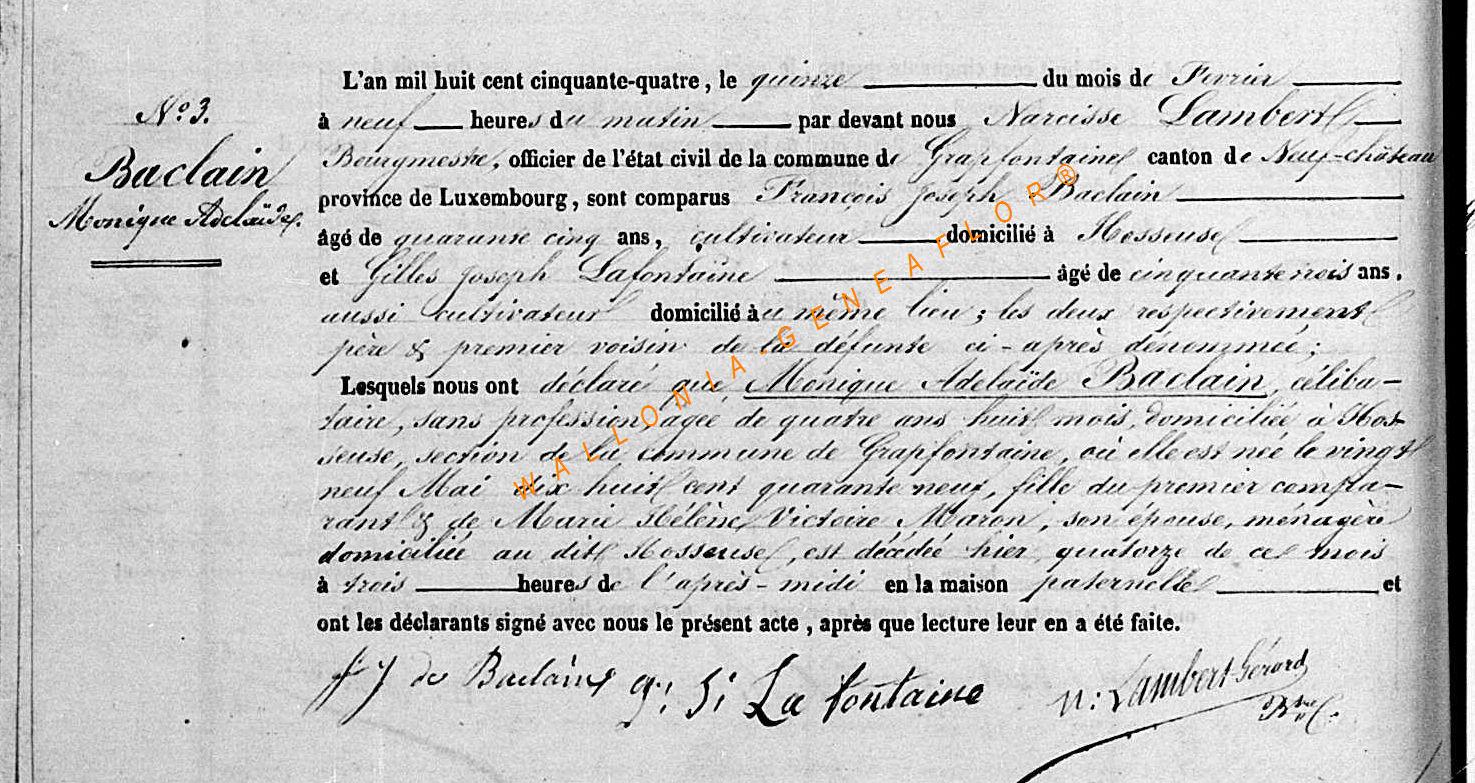 N° 3.
Baclain
Monique Adelaïde.
L'an mil huit cent cinquante-quatre, le quinze du mois de Fevrier
à neuf heures du matin par devant nous Narcisse Lambert
Bourgmestre, officier de l'état civil de la commune de Grapfontaine canton de Neuf-château
province de Luxembourg, sont comparus François Joseph Baclain
âgé de quarante cinq ans, cultivateur domicilié à Hosseuse
et Gilles Joseph Lafontaine âgé de cinquante trois ans.
aussi cultivateur domicilié à u même lieu; les deux respectivement
père & premier voisin de la défunte ci-après dénommée;
Lesquels nous ont déclaré que Monique Adelaïde Baclain, céliba-
taire, sans profession, agée de quatre ans huit mois, domiciliée à Hos-
seuse, section de la commune de Grapfontaine, où elle est née le vingt
neuf Mai dix huit cent quarante neuf, fille du premier compa-
rant & de Marie Hélène Victoire Maron, son épouse, ménagère
domiciliée au dit Hosseuse, est décédée hier, quatorze de ce mois
à trois heures de l'après-midi en la maison paternelle et
ont les déclarants signé avec nous le présent acte, après que lecture leur en a été faite.
f j de Baclain g: j: La fontaine n: Lambert-Gérard
Bme.
WALLONIA-GENEAFLOR®